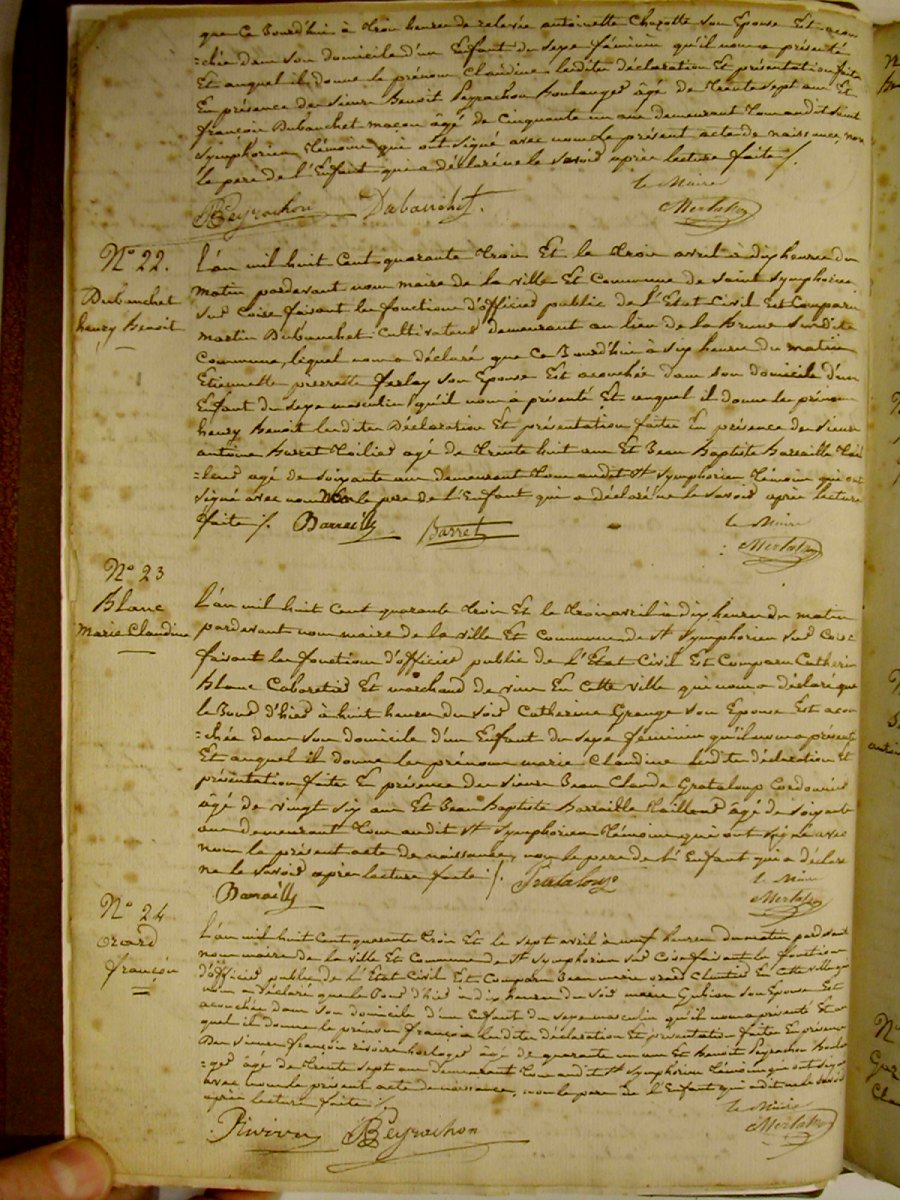 que ce Jourd'hui à trois heures de relevée antoinette Chazotte son Epouse Est acou
=chée dans son domicile d'un Enfant du sexe féminin qu'il nous a présenté
Et auquel il donne le prénom Claudine lesdites déclaration Et présentation faites
En présence des sieurs Benoit Peyrachon Boulanger âgé de trente sept ans Et
françois Dubanchet macon âgé de Cinquante un ans demeurant tous audit saint
Symphorien, témoins qui ont signé avec nous le présent acte de naissance, non
le pere de l'Enfant qui a déclaré ne le savoir après lecture faite /.
le Maire
Peyrachon Dubanchet.
N° 22.
Dubanchet
henry Benoit
L'an mil huit Cent quarante trois Et le trois avril à dix heures du
matin pardevant nous maire de la ville Et Commune de Saint Symphorien
sur Coise faisant les fonctions d'officier public de l'Etat Civil Est Comparu
martin Dubanchet Cultivateur demeurant au lieu de la
Commune, lequel nous a déclaré que Ce Jourd'hui à six heures du matin
Etiennette pierrette ferlay son Epouse Est acouchée dans son domicile d'un
Enfant du sexe masculin qu'il nous a présenté Et auquel il donne les prénoms
henry Benoit lesdites Déclaration Et présentation faites En présence des sieurs
antoine Barret âgé de trente huit ans Et Jean Baptiste Barraille tail
=leur âgé de soixante ans demeurant tous audit St Symphorien témoins qui ont
signé avec nous Non le pere de l'Enfant qui a déclaré ne le savoir après lecture
faite /. Barrailly Barret
le Maire
N° 23
Blanc
Marie Claudine
L'an mil huit Cent quarante trois Et le trois avril à dix heures du matin
pardevant nous maire de la ville Et Commune de St Symphorien sur Coise
faisant les fonctions d'officier public de l'Etat Civil Est Comparu Catherin
Blanc Cabaretier Et marchand de vin En Cette ville qui nous a déclaré que
le Jour d'hier à huit heures du soir Catherine Grange son Epouse Est acou
=chée dans son domicile d'un Enfant du sexe féminin qu'il nous a présenté
Et auquel il donne les prénoms marie Claudine lesdites déclaration Et
présentation faites En présence des sieurs Jean Claude Grataloup Cordonnier
âgé de vingt six ans Et Jean Baptiste Barraille tailleur âgé de soixante
ans demeurant tous audit St Symphorien témoins qui ont signé avec
nous le présent acte de naissance, non le pere de l'Enfant qui a déclaré
ne le savoir après lecture faite /. Grataloup
le Maire
Barrailly
N° 24
orard
françois
L'an mil huit Cent quarante trois Et le sept avril à neuf heures du matin pardevant
nous maire de la ville Et Commune de St Symphorien sur Coise faisant les fonctions
d'officier public de l'Etat Civil Est Comparu Jean marie orard En Cette ville qui
nous a déclaré que le Jour d'hier à dix heures du soir marie son Epouse Est
acouchée dans son domicile d'un Enfant du sexe masculin qu'il nous a présenté Et au
quel il donne le prénom françois lesdites déclaration Et présentation faites En présence
Des sieurs françois horloger âgé de quarante un ans Et Benoit Peyrachon Boulan
=ger âgé de trente sept ans demeurant tous audit St Symphorien témoins qui ont signé
avec nous le présent acte de naissance, non le pere de l'Enfant qui a dit ne le savoir
après lecture faite /.
le Maire
Peyrachon